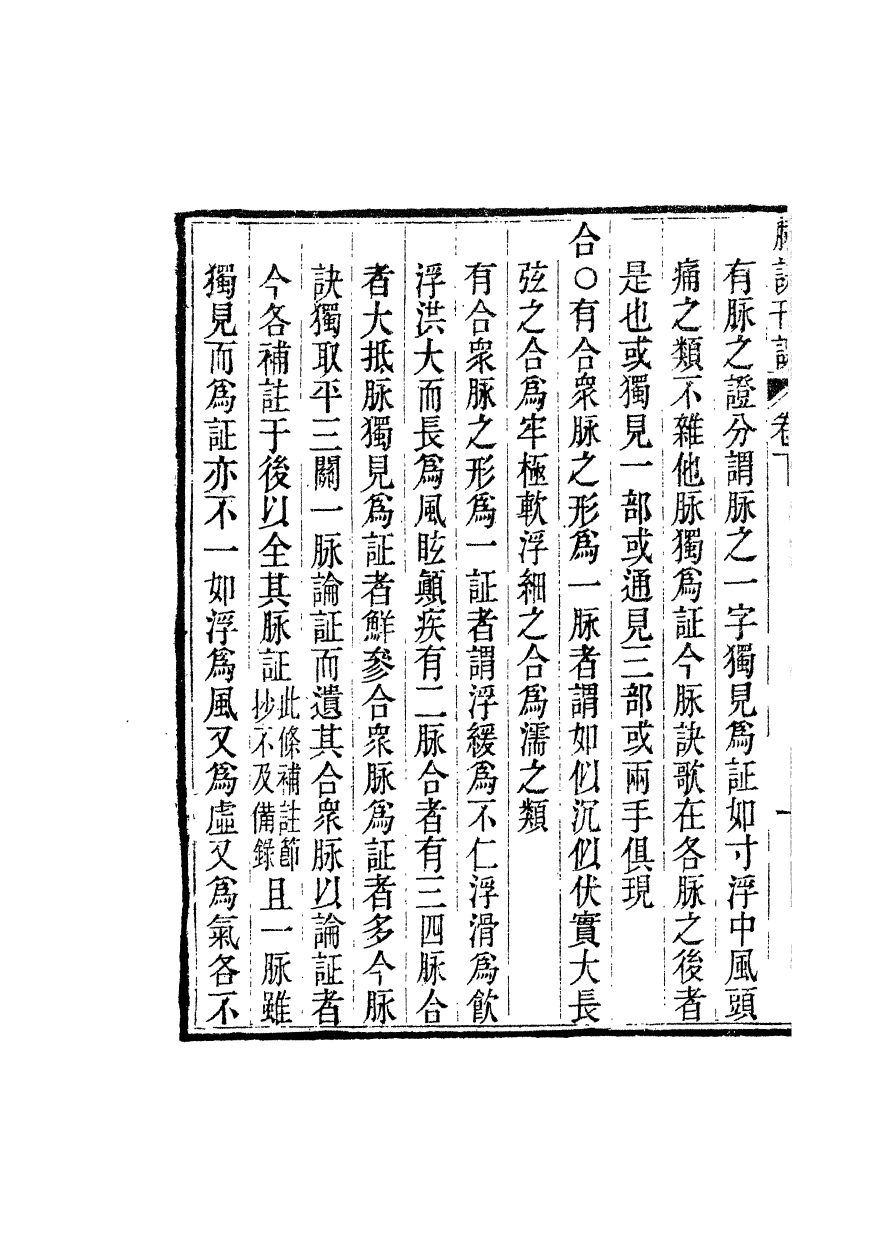 脉訣刊誤 卷下 一
有脉之證分謂脉之一字獨見爲証如寸浮中風頭
痛之類不雜他脉獨爲証今脉訣歌在各脉之後者
是也或獨見一部或通見三部或兩手俱現
合○有合衆脉之形爲一脉者謂如似沉似伏實大長
弦之合爲牢極軟浮細之合爲濡之類
有合衆脉之形爲一証者謂浮緩爲不仁浮滑爲飲
浮洪大而長爲風眩顚疾有二脉合者有三四脉合
者大抵脉獨見爲証者鮮參合衆脉爲証者多今脉
訣獨取平三關一脉論証而遺其合衆脉以論証者
今各補註于後以全其脉証此條補註節抄不及備錄且一脉雖
獨見而爲証亦不一如浮爲風又爲虛又爲氣各不